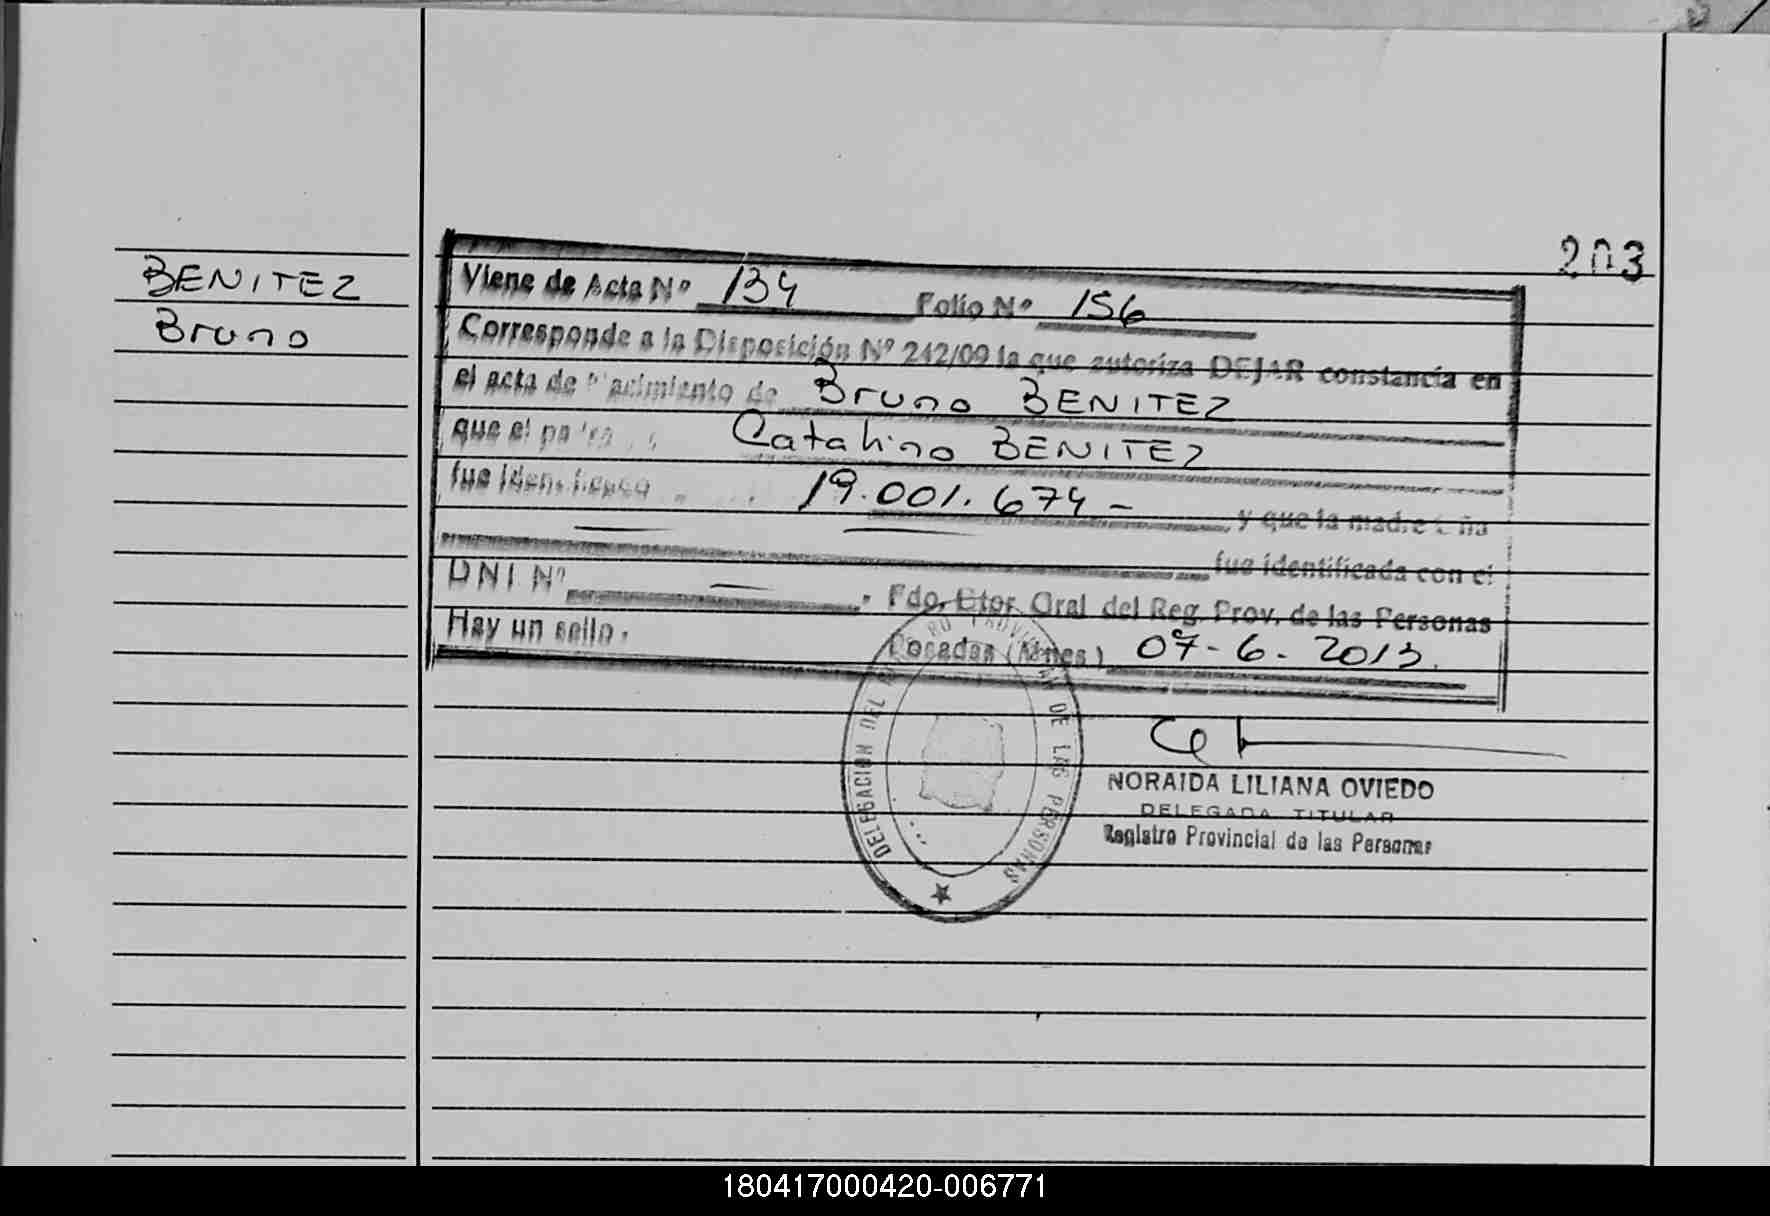 203
BENITEZ
Bruno
Viene de Acta Nº 134 Folio Nº 156
Corresponde a la Disposición Nº 242/09 la que autoriza DEJAR constancia en
el acta de Nacimiento de Bruno BENITEZ
que el padre Catalino BENITEZ
fue identificado 19.001.674 –
y que la madre
fue identificada con el
DNI Nº — . Fdo. Dtor. Gral del Reg. Prov. de las Personas
Hay un sello.
Posadas (Mnes) 07-6-2013.
DELEGACION DEL REGISTRO PROVINCIAL DE LAS PERSONAS
NORAIDA LILIANA OVIEDO
DELEGADA TITULAR
Registro Provincial de las Personas
180417000420-006771